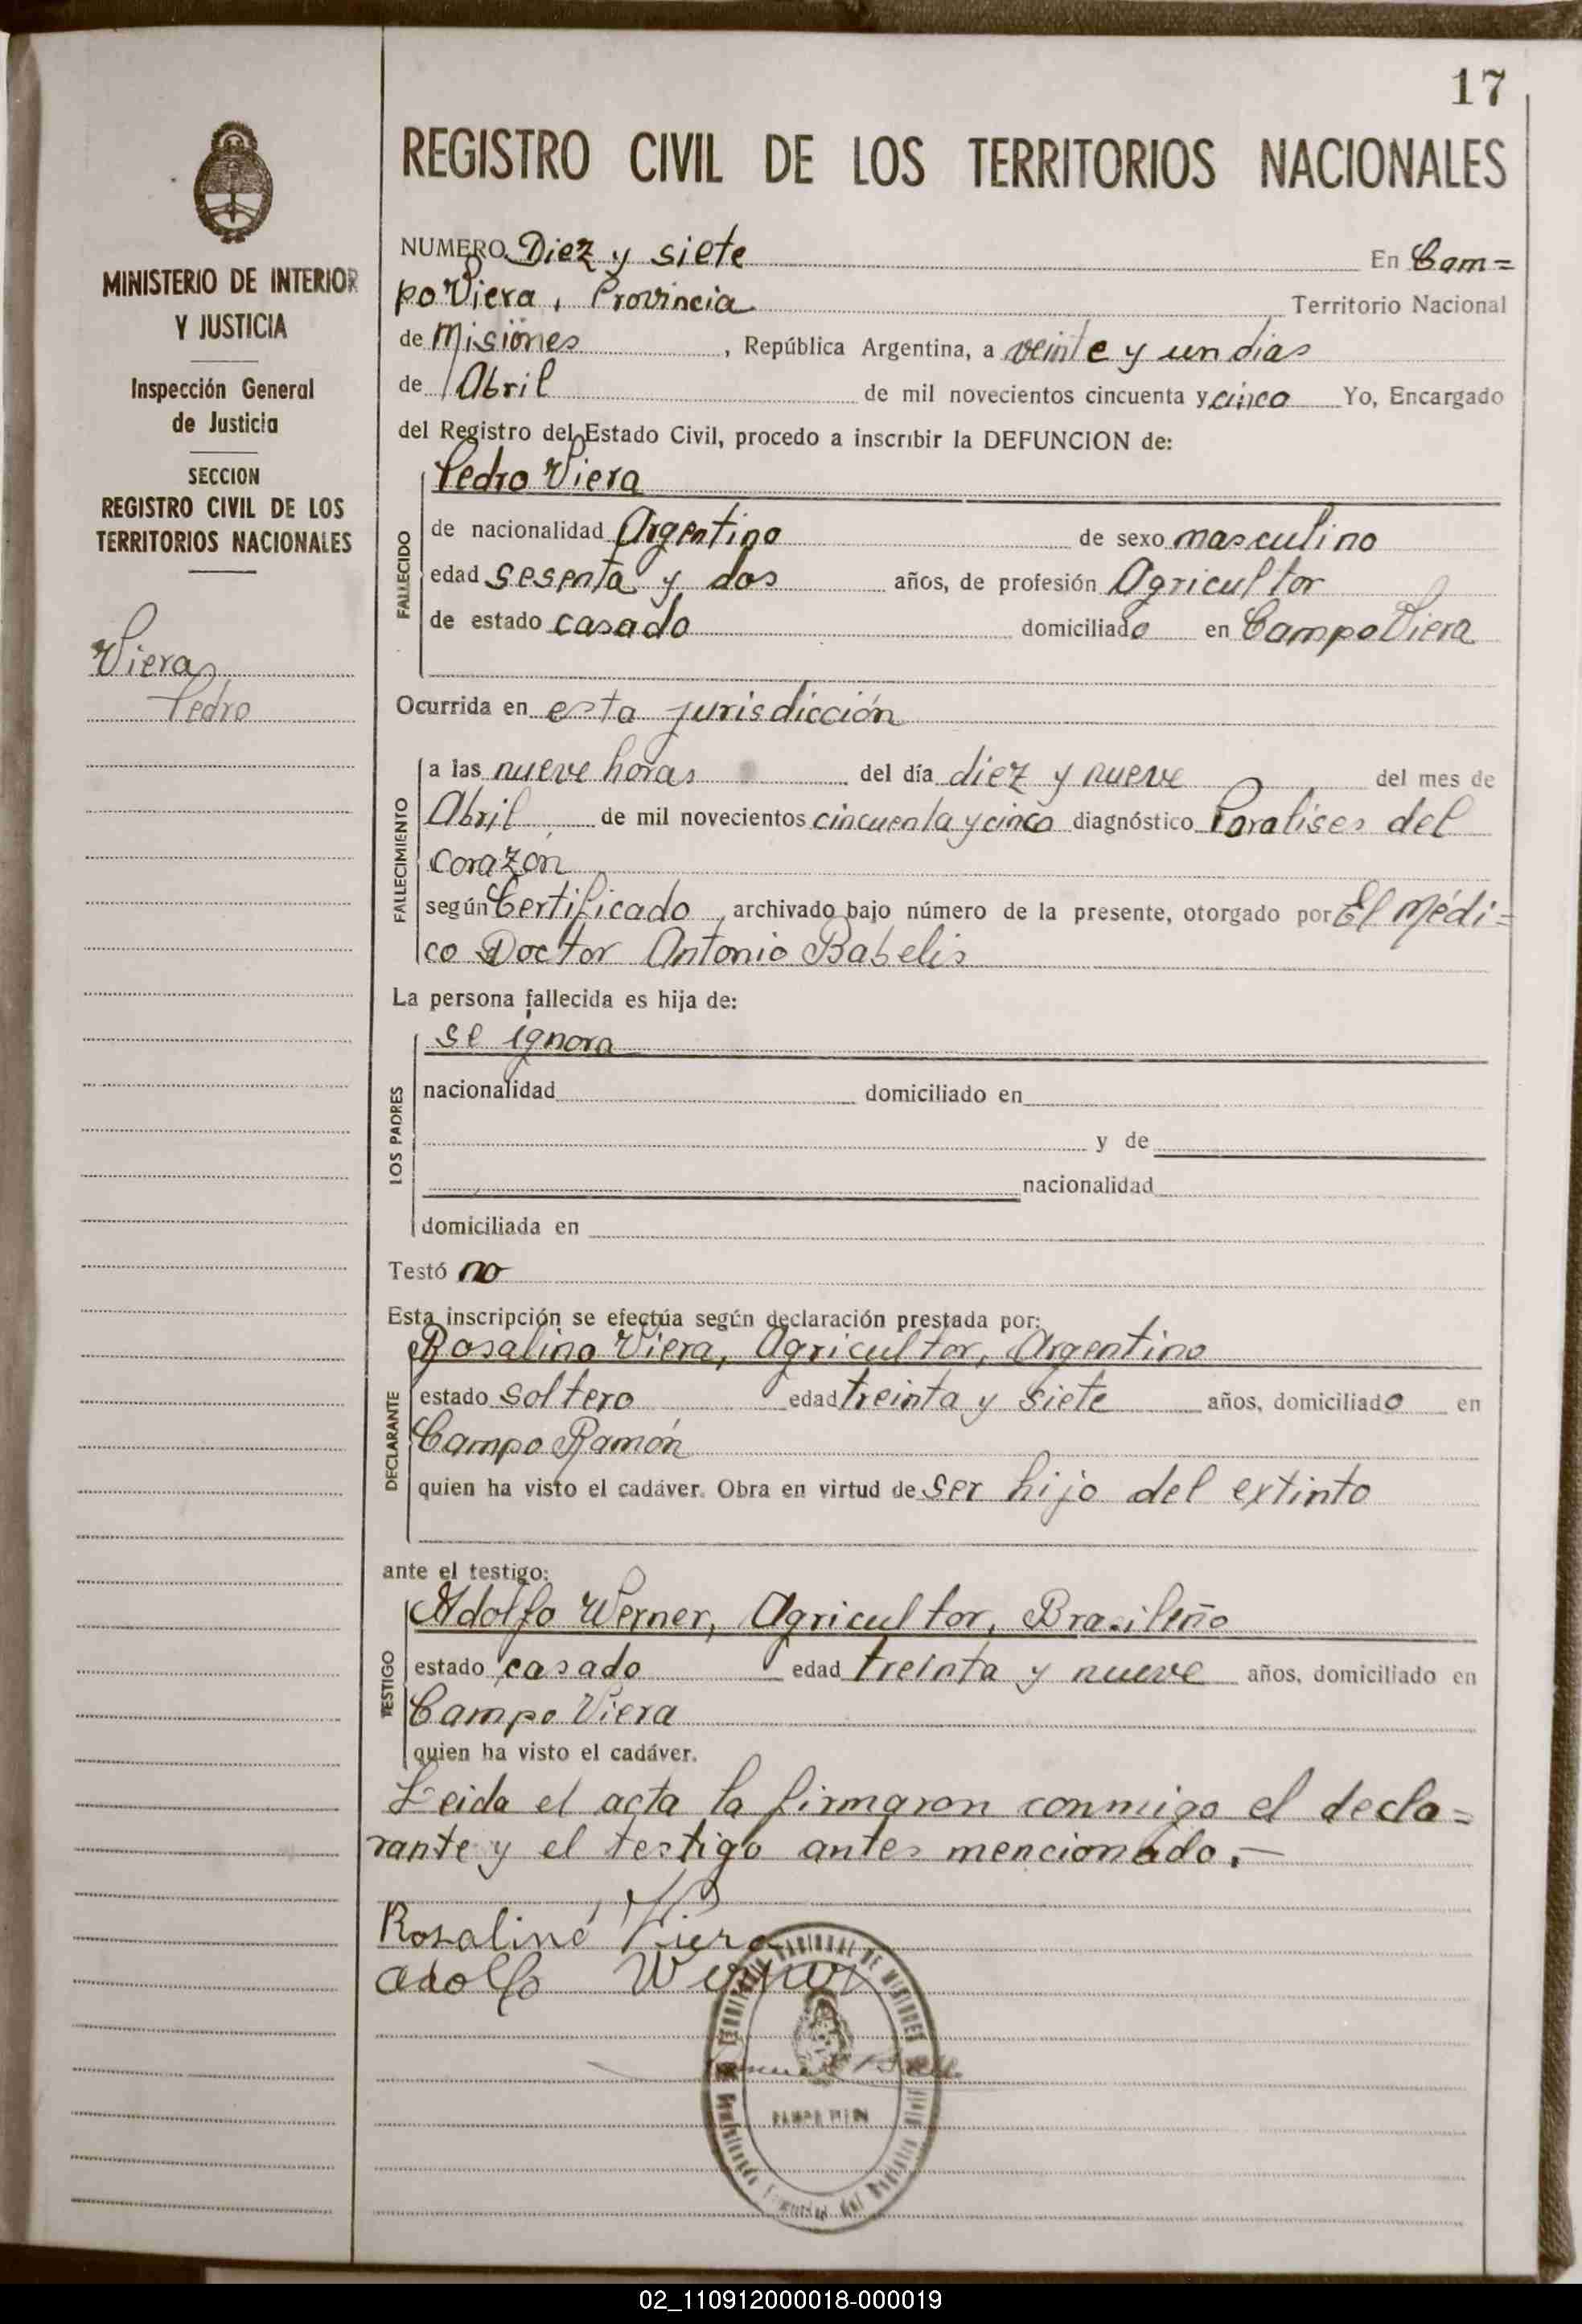 17
REGISTRO CIVIL DE LOS TERRITORIOS NACIONALES
MINISTERIO DE INTERIOR
Y JUSTICIA
Inspección General
de Justicia
SECCION
REGISTRO CIVIL DE LOS
TERRITORIOS NACIONALES
Viera
Pedro
NUMERO Diez y siete En Cam=
po Viera, Provincia Territorio Nacional
de Misiones, República Argentina, a veinte y un dias
de Abril de mil novecientos cincuenta y cinco Yo, Encargado
del Registro del Estado Civil, procedo a inscribir la DEFUNCION de:
FALLECIDO
Pedro Viera
de nacionalidad Argentino de sexo masculino
edad sesenta y dos años, de profesión Agricultor
de estado casado domiciliado en Campo Viera
Ocurrida en esta jurisdicción
FALLECIMIENTO
a las nueve horas del día diez y nueve del mes de
Abril de mil novecientos cincuenta y cinco diagnóstico Paralises del
corazon
según Certificado, archivado bajo número de la presente, otorgado por El Médi=
co Doctor Antonio Babelis
La persona fallecida es hija de:
LOS PADRES
se ignora
nacionalidad domiciliado en
y de
nacionalidad
domiciliada en
Testó no
Esta inscripción se efectúa según declaración prestada por:
DECLARANTE
Rosalino Viera, Agricultor, Argentino
estado soltero edad treinta y siete años, domiciliado en
Campo Ramón
quien ha visto el cadáver. Obra en virtud de ser hijo del extinto
ante el testigo:
TESTIGO
Adolfo Werner, Agricultor, Brasileño
estado casado edad treinta y nueve años, domiciliado en
Campo Viera
quien ha visto el cadáver.
Leida el acta la firmaron conmigo el decla=
rante y el testigo antes mencionado.-
Rosalino Viera
Adolfo Werner
02_110912000018-000019